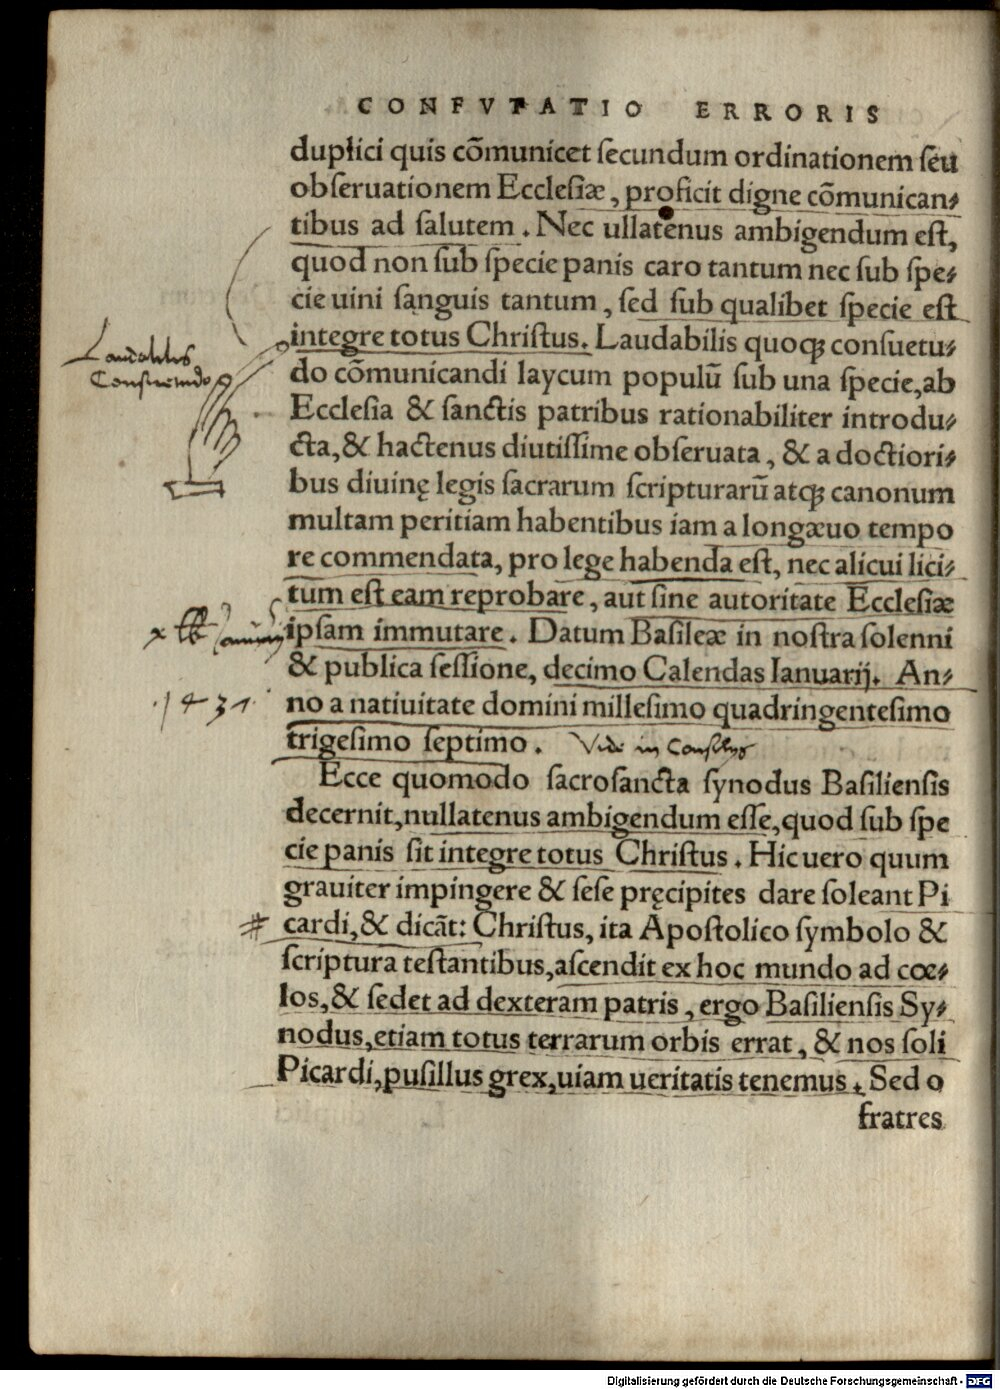 CONFVTATIO ERRORIS
duplici quis cõmunicet ſecundum ordinationem ſeu
obſeruationem Eccleſiæ, proficit digne cõmunican⸗
tibus ad ſalutem. Nec ullatenus ambigendum eſt,
quod non ſub ſpecie panis caro tantum nec ſub ſpe⸗
cie uini ſanguis tantum, ſed ſub qualibet ſpecie eſt
integre totus Chriſtus. Laudabilis quoqꝫ conſuetu⸗
Laudabilis
Consuetudo
do cõmunicandi laycum populũ ſub una ſpecie, ab
Eccleſia & ſanctis patribus rationabiliter introdu⸗
cta, & hactenus diutiſſime obſeruata, & a doctiori⸗
bus diuinę legis ſacrarum ſcripturarũ atqꝫ canonum
multam peritiam habentibus iam a longæuo tempo
re commendata, pro lege habenda eſt, nec alicui lici⸗
tum eſt eam reprobare, aut ſine autoritate Eccleſiæ
ipſam immutare. Datum Baſileæ in noſtra ſolenni
& publica ſeſſione, decimo Calendas Ianuarij. An⸗
no a natiuitate domini milleſimo quadringenteſimo
1437
trigeſimo ſeptimo. Vide in
Ecce quomodo ſacroſancta ſynodus Baſilienſis
decernit, nullatenus ambigendum eſſe, quod ſub ſpe
cie panis ſit integre totus Chriſtus. Hic uero quum
grauiter impingere & ſeſe pręcipites dare ſoleant Pi
# cardi, & dicãt: Chriſtus, ita Apoſtolico ſymbolo &
ſcriptura teſtantibus, aſcendit ex hoc mundo ad cœ⸗
los, & ſedet ad dexteram patris, ergo Baſilienſis Sy⸗
nodus, etiam totus terrarum orbis errat, & nos ſoli
Picardi, puſillus grex, uiam ueritatis tenemus. Sed o
fratres
Digitalisierung gefördert durch die Deutsche Forschungsgemeinschaft - DFG